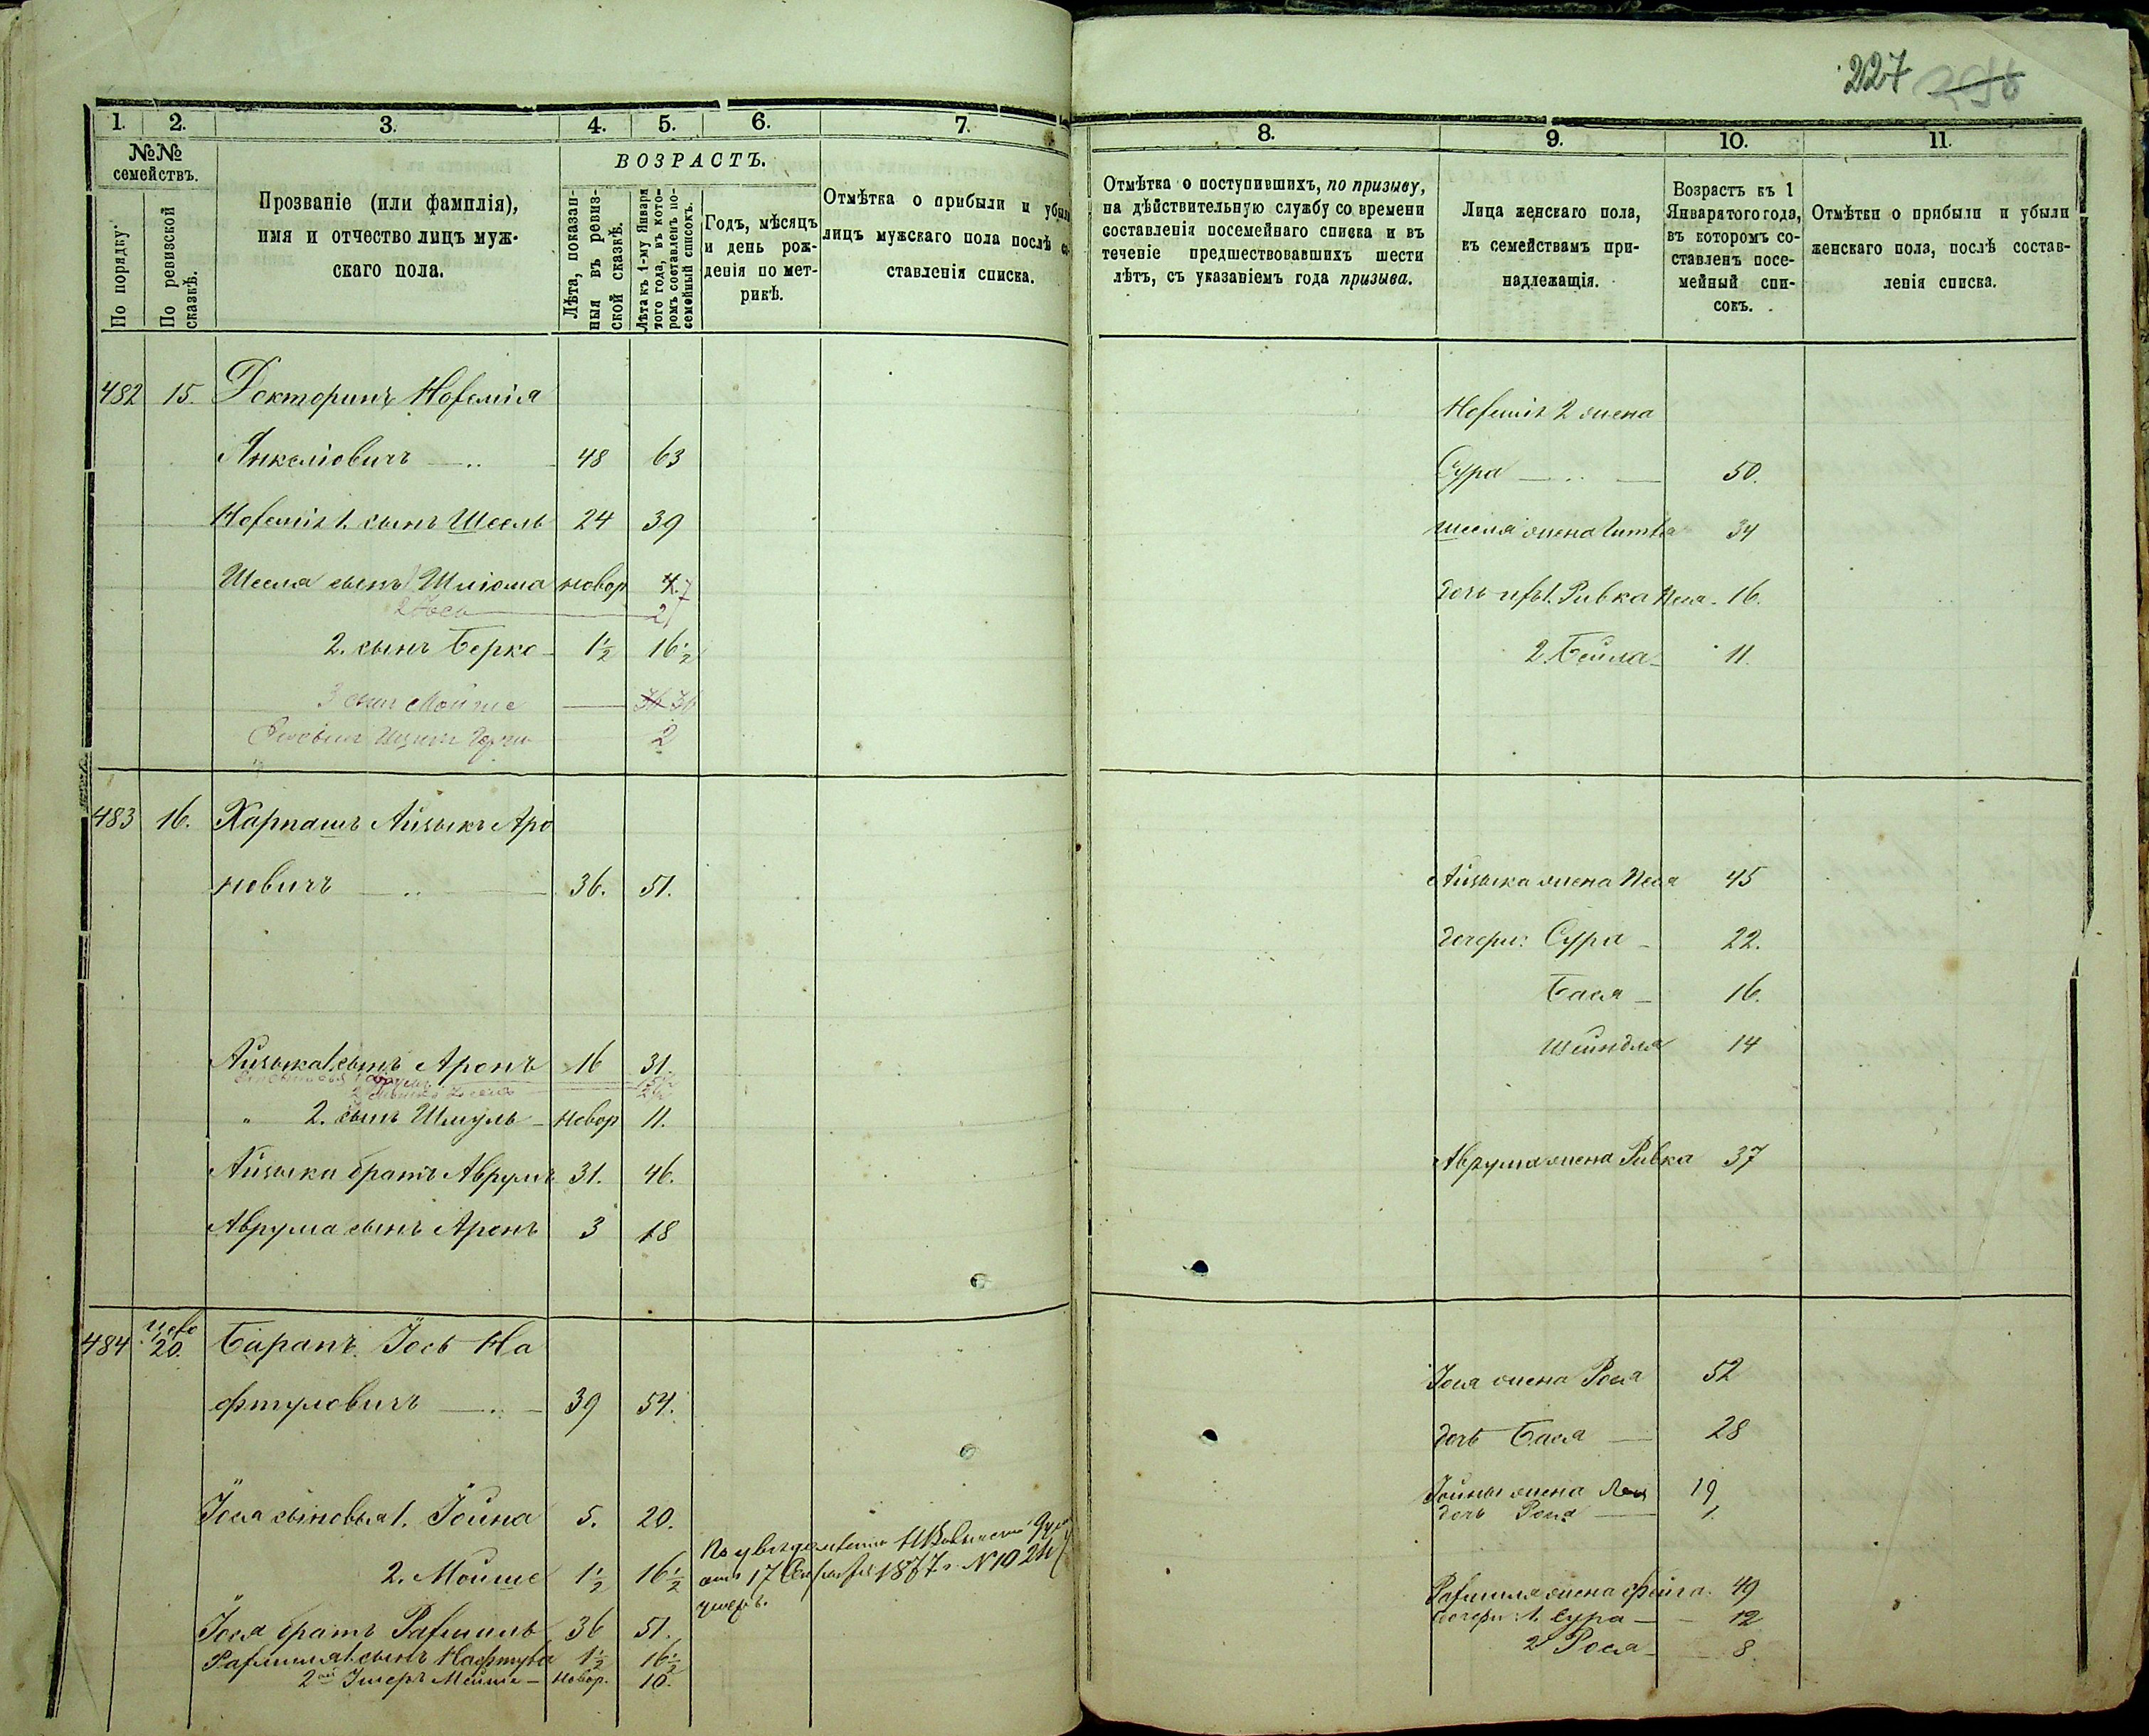 227 296
1. 2. 3. 4. 5. 6. 7.
№№ семействъ.
По порядку.
По ревизской сказкѣ.
Прозваніе (или фамилія),
имя и отчество лицъ муж-
скаго пола.
ВОЗРАСТЪ.
Лѣта, показан-
ныя въ ревиз-
ской сказкѣ.
Лѣта къ 1-му Января
того года, въ кото-
ромъ составленъ по-
семейный списокъ.
Годъ, мѣсяцъ
и день рож-
денія по мет-
рикѣ.
Отмѣтка о прибыли и убыли
лицъ мужскаго пола послѣ со-
ставленія списка.
482 15. Докторинъ
Янкеліовичъ 48 63
1. сынъ Шесль 24 39
Шесля сынъ Шліома новор 4. 7
2 Іось 2
2. сынъ Берко 1½ 16½
3 сынъ Мойше 36
2
483 16. Харпашъ Айзыкъ Аро
новичъ 36. 51.
Айзыка 1. сынъ Аронъ 16 31.
" 2. сынъ Шмуль новор 11.
Айзыка братъ Аврумъ 31. 46.
Аврума сынъ Аронъ 3 18
484 20. Баранъ Іось На
фтуловичъ 39 54.
Іося сыновья 1. Іойна 5. 20.
2. Мойше 1½ 16½
отъ 17 1877 г. № 1024
умеръ.
Іося братъ Рафаилъ 36 51.
Рафаила 1. сынъ Нафтула 1½ 16½
2ой Мейше новор. 10.
8. 9. 10. 11.
Отмѣтка о поступившихъ, по призыву,
на дѣйствительную службу со времени
составленія посемейнаго списка и въ
теченіе предшествовавшихъ шести
лѣтъ, съ указаніемъ года призыва.
Лица женскаго пола,
къ семействамъ при-
надлежащія.
Возрастъ къ 1
Января того года,
въ которомъ со-
ставленъ посе-
мейный спи-
сокъ.
Отмѣтки о прибыли и убыли
женскаго пола, послѣ состав-
ленія списка.
2 жена
Сура 50.
Шесля жена Гитла 34
дочь 1. Ривка 16.
2. Бейла 11.
Айзыка жена Песя 45
дочери: Сура 22.
Бася 16.
Шейндля 14
Аврума жена Ривка 37
Іося жена Рося 52
дочь Бася 28
Іойны жена Лея 19
дочь Рося 1.
Рафаила жена Фейга. 49
дочери: 1. Сура 12
2 Рося 8.